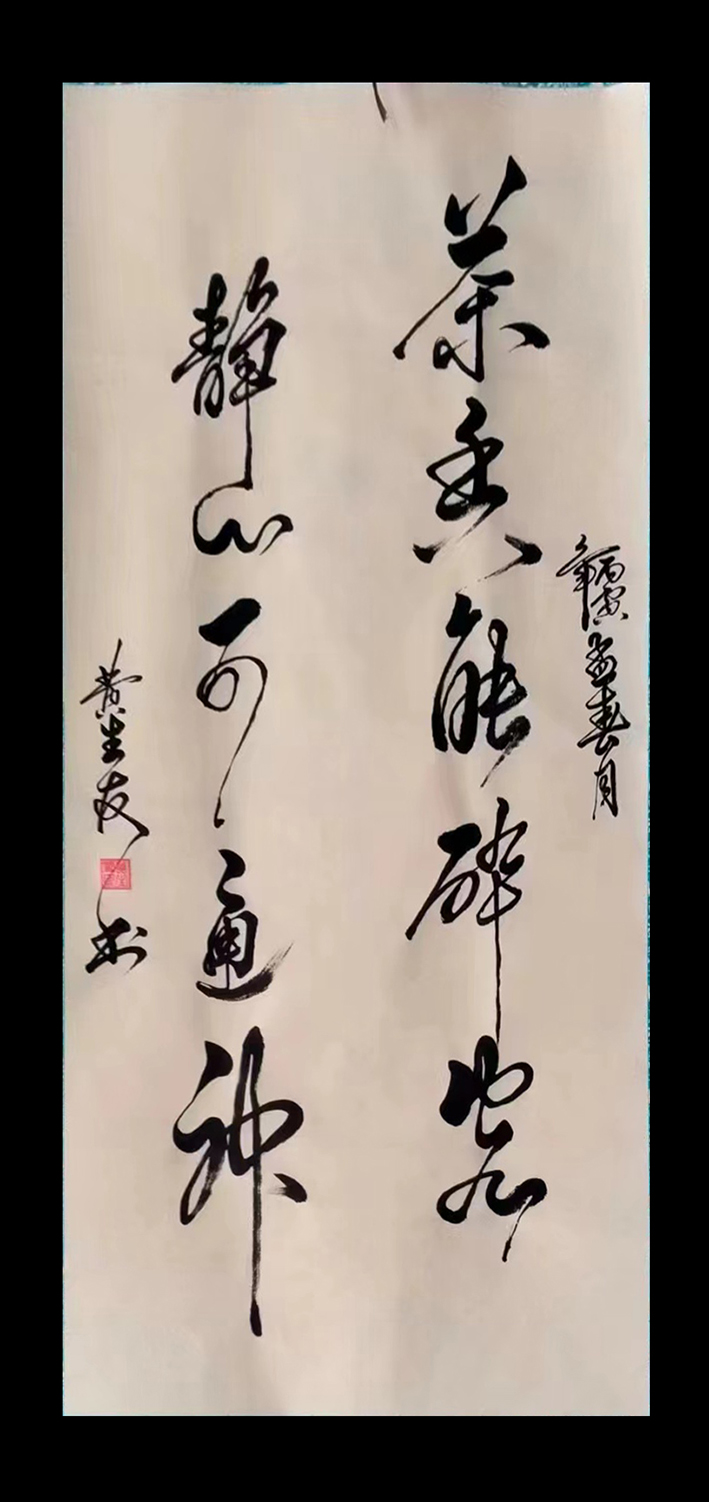 丙寅年孟春月
茶香能醉客
静心可通神
黄生友书